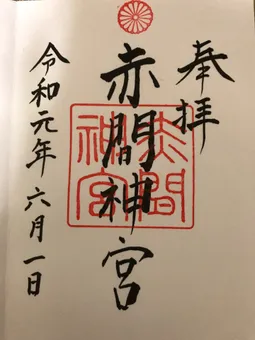 奉拝
赤間神宮
赤間神宮
令和元年六月一日